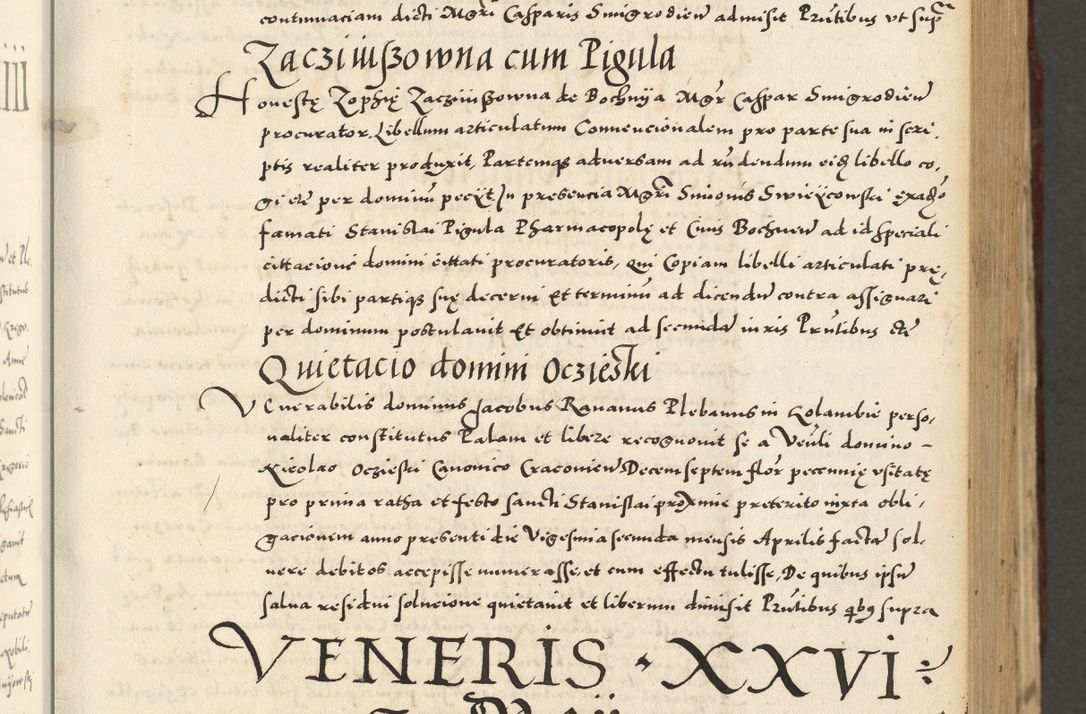 contumaciam dicti Mgri Casparis Smigrodien admisit Prntibus vt supra
Zacziiuszowna cum Pigula
Honestę Zophię Zacziiuszowna de Bochnya Mgr Caspar Smigrodien
procurator, Libellum articulatum Conuencionalem pro parte sua in scri,
ptis realiter produxit, Partemque aduersam ad rndendum eidem libello co,
gi etc per dominum peciit In presencia Mgri Simonis Swieyczowski ex adso
famati Stanislai Pigula Pharmacopolę et Ciuis Bochnen ad id speciali
cittacione domini cittati procuratoris, qui Copiam libelli articulati prę,
dicti sibi partique suę decerni Et terminum ad dicendum contra assignari
per dominum postulauit Et obtinuit ad secundam iuris Prntibus etc
Quietacio domini Oczieski
Venerabilis dominus Jacobus Rananus Plebanus in Golambie perso,
naliter constitutus Palam et libere recognouit se a Venli domino –
Nicolao Oczieski Canonico Cracouien Decem septem flor pecunię vsitatę
pro prima ratha et festo sancti Stanislai proxime preterito iuxta obli,
gacionem anno presenti die Vigesima secunda mensis Aprilis factam sol,
uere debitos accepisse numerasse, et cum effectu tulisse, De quibus ipsum
salua residui solucione quietauit et liberum dimisit Prntibus quibus supra
VENERIS · XXVI